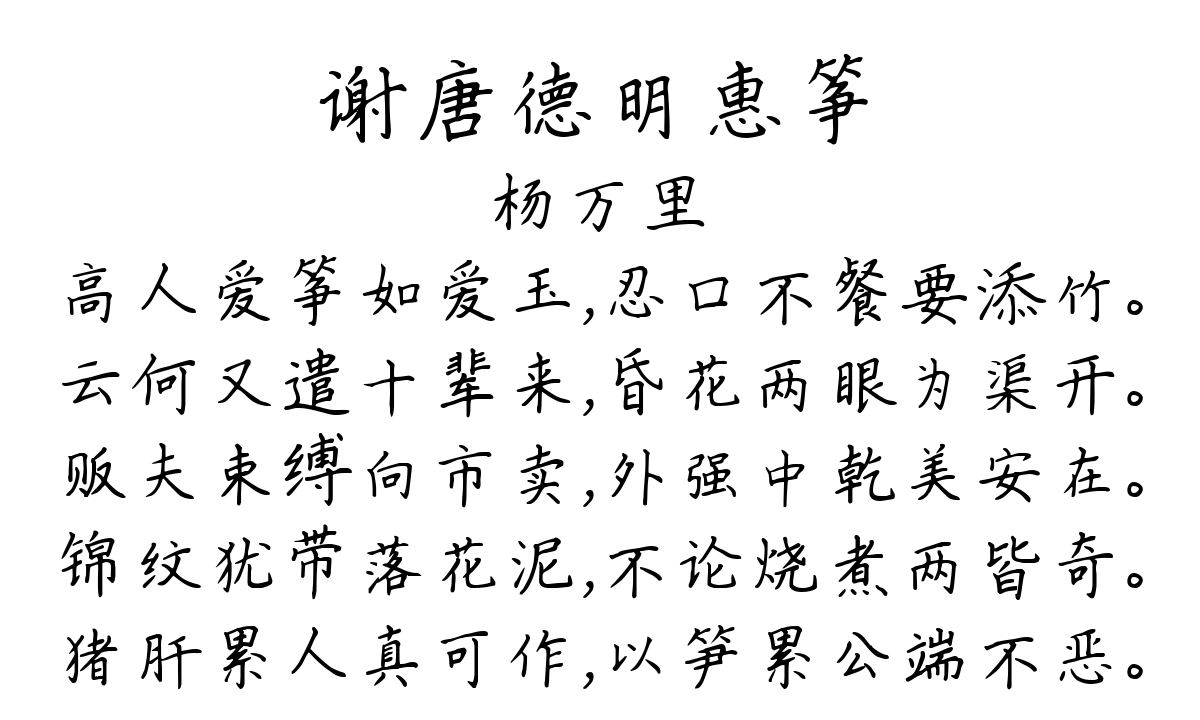 谢唐德明惠筝
杨万里
高人爱筝如爱玉,忍口不餐要添竹。
云何又遣十辈来,昏花两眼为渠开。
贩夫束缚向市卖,外强中乾美安在。
锦纹犹带落花泥,不论烧煮两皆奇。
猪肝累人真可作,以笋累公端不恶。